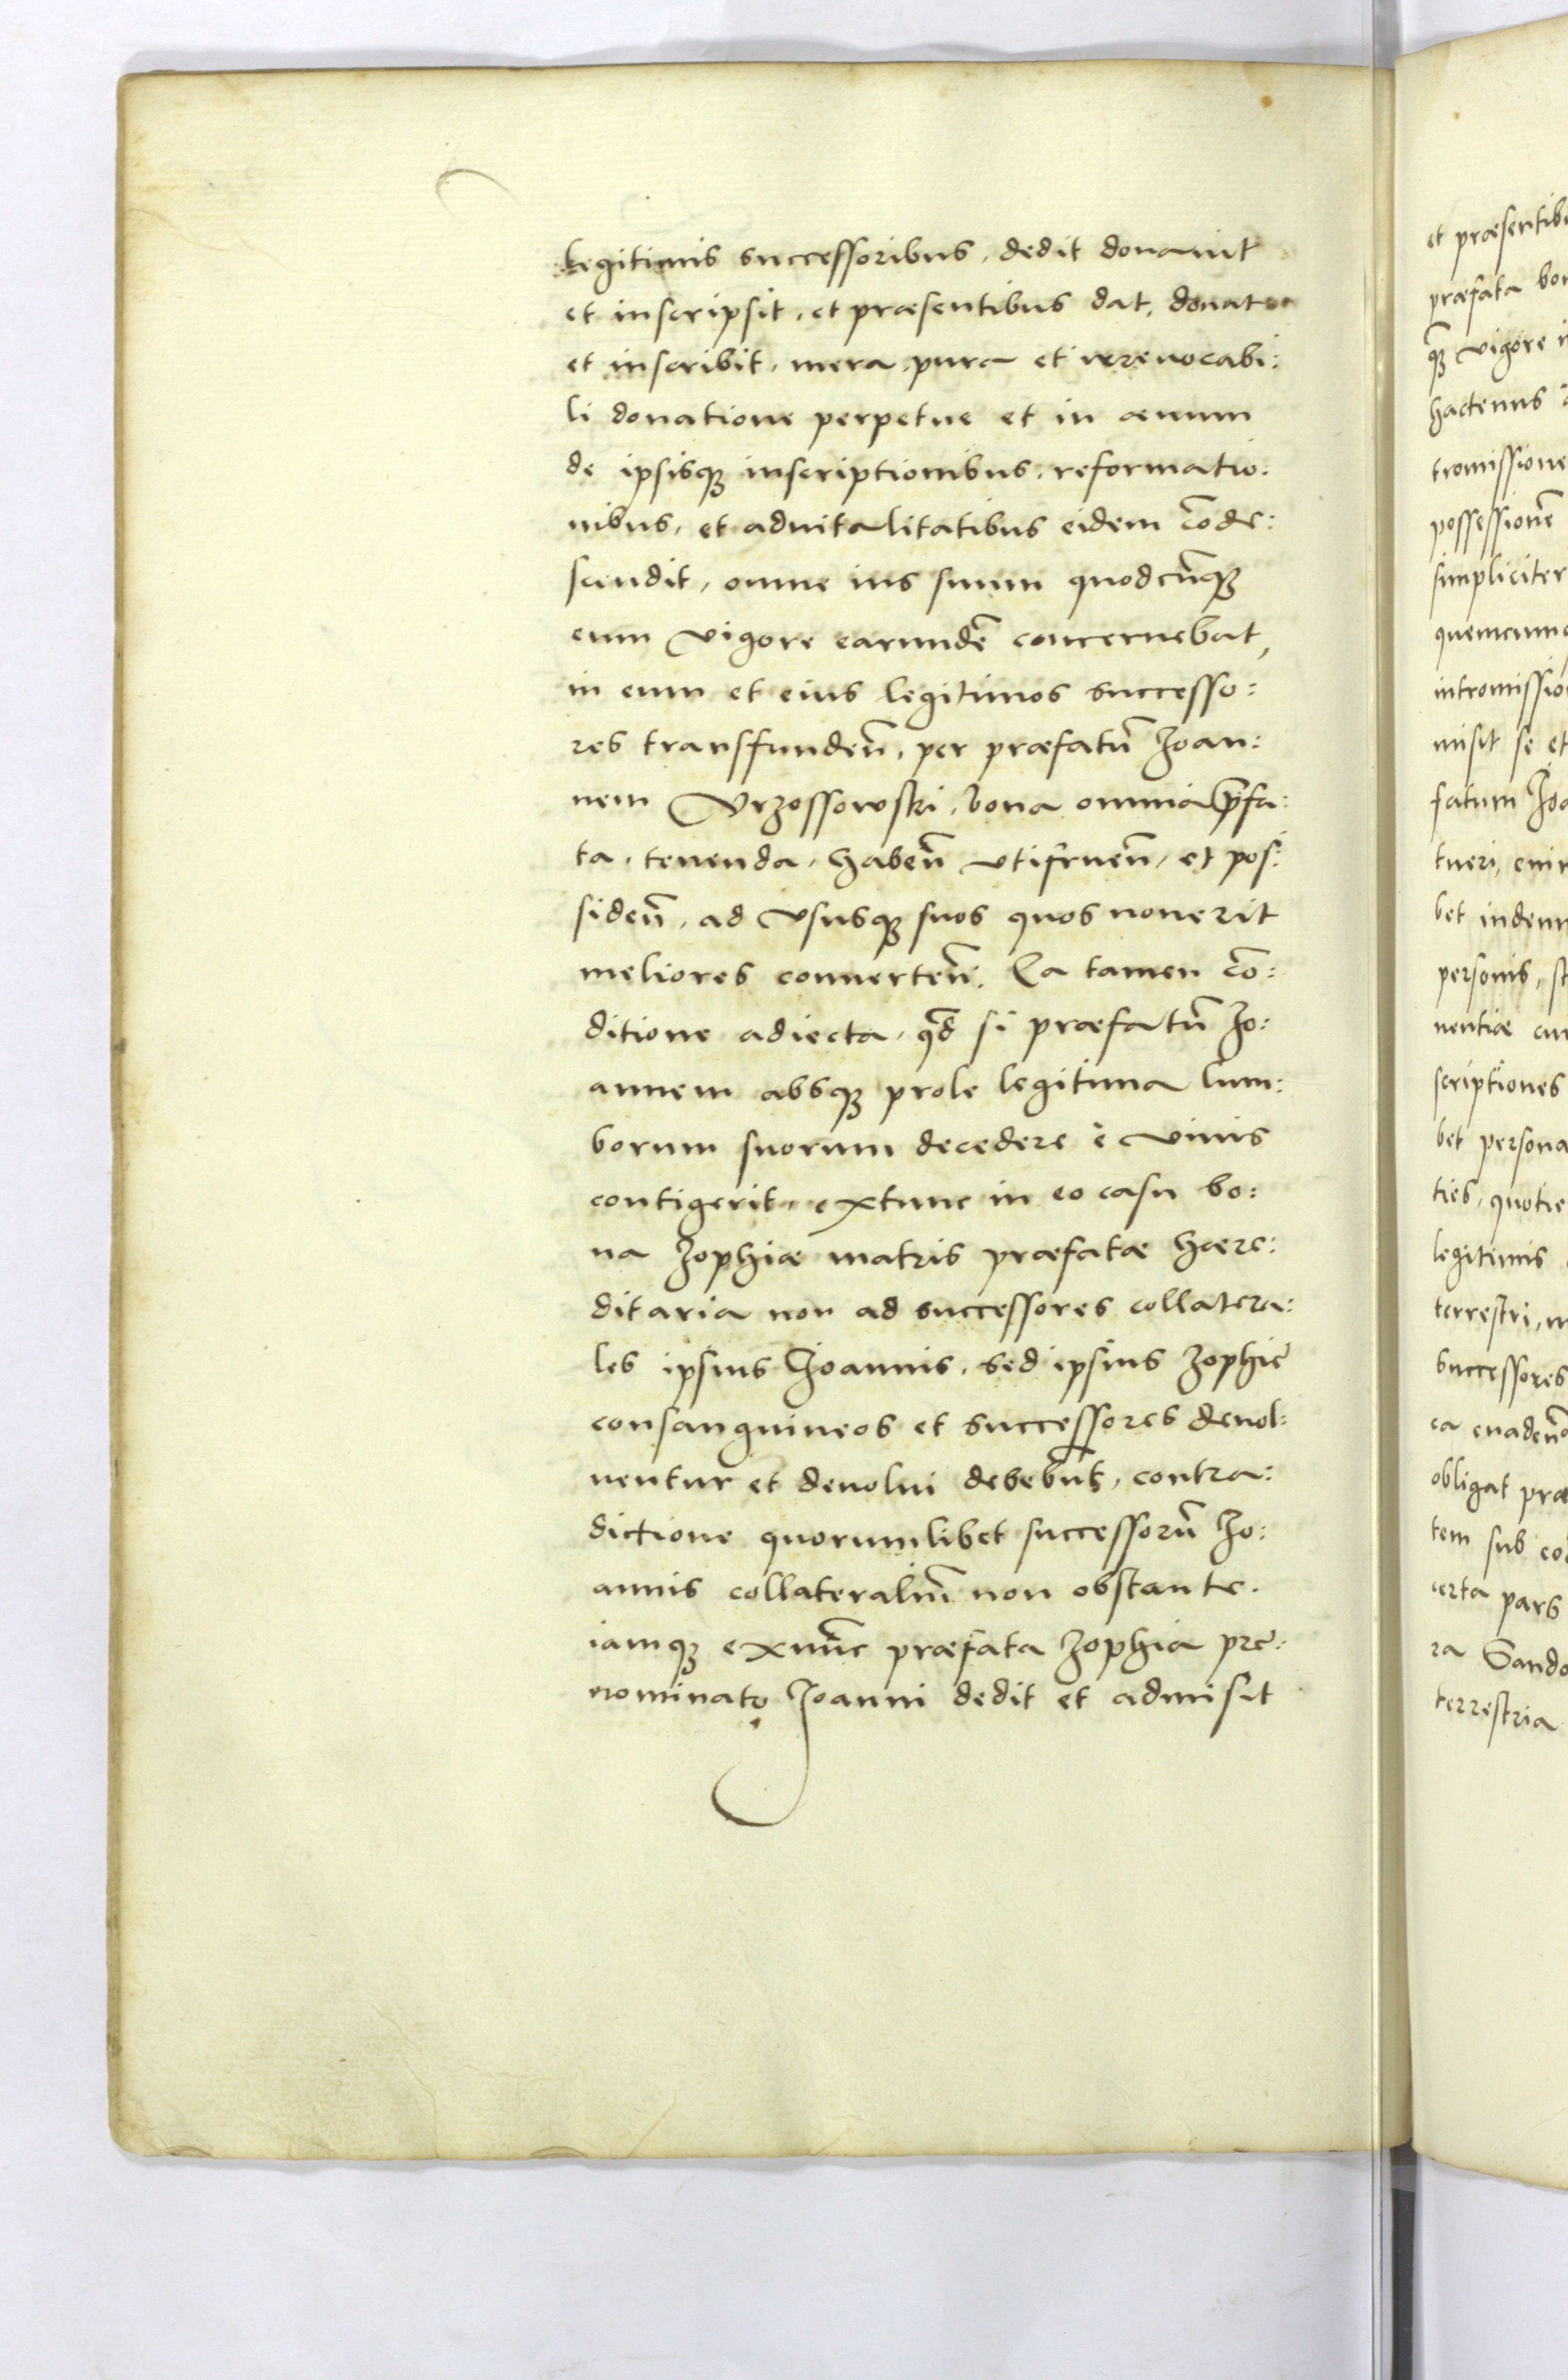 legitimis successoribus, dedit donauit
et inscripsit, et præsentibus dat, donat
et inscribit, mera pura et irreuocabi:
li donatione perpetue et in æuum
de ipsisqꝫ inscriptionibus, reformatio:
nibus, et aduitalitatibus eidem cōde:
scendit, omne ius suum quodcūqꝫ
eum vigore earundē concernebat,
in eum et eius legitimos successo:
res transfundeñ, per præfatū Joan:
nem Vrzossowski, bona omnia p̄fa:
ta, tenenda, habeñ vtifrueñ, et pos:
sideñ, ad vsusqꝫ suos quos nouerit
meliores conuerteñ. Ea tamen cō:
ditione adiecta, qd̄ si præfatū Jo:
annem absqꝫ prole legitima lum:
borum suorum decedere è viuis
contigerit, extunc in eo casu bo:
na Zophiæ matris præfatæ hære:
ditaria non ad successores collatera:
les ipsius Joannis, sed ipsius Zophie
consanguineos et successores deuol:
uentur et deuolui debebūt, contra:
dictione quorumlibet successorū Jo:
annis collateraliū non obstante.
iamqꝫ exnūc præfata Zophia pre:
nominato Joanni dedit et admisit
et præsentib
præfata bo
qꝫ vigore i
hactenus
tromissione
possessionē
simpliciter
quemcumq
intromissio
misit se et
fatum Joa
tueri, eui
bet indem
personis, s
nentiæ cu
scriptiones
bet persona
ties, quotie
legitimis
terrestri,
successores
ca euadeñ
obligat præ
tem sub co
certa pars
ra Sando
terrestria